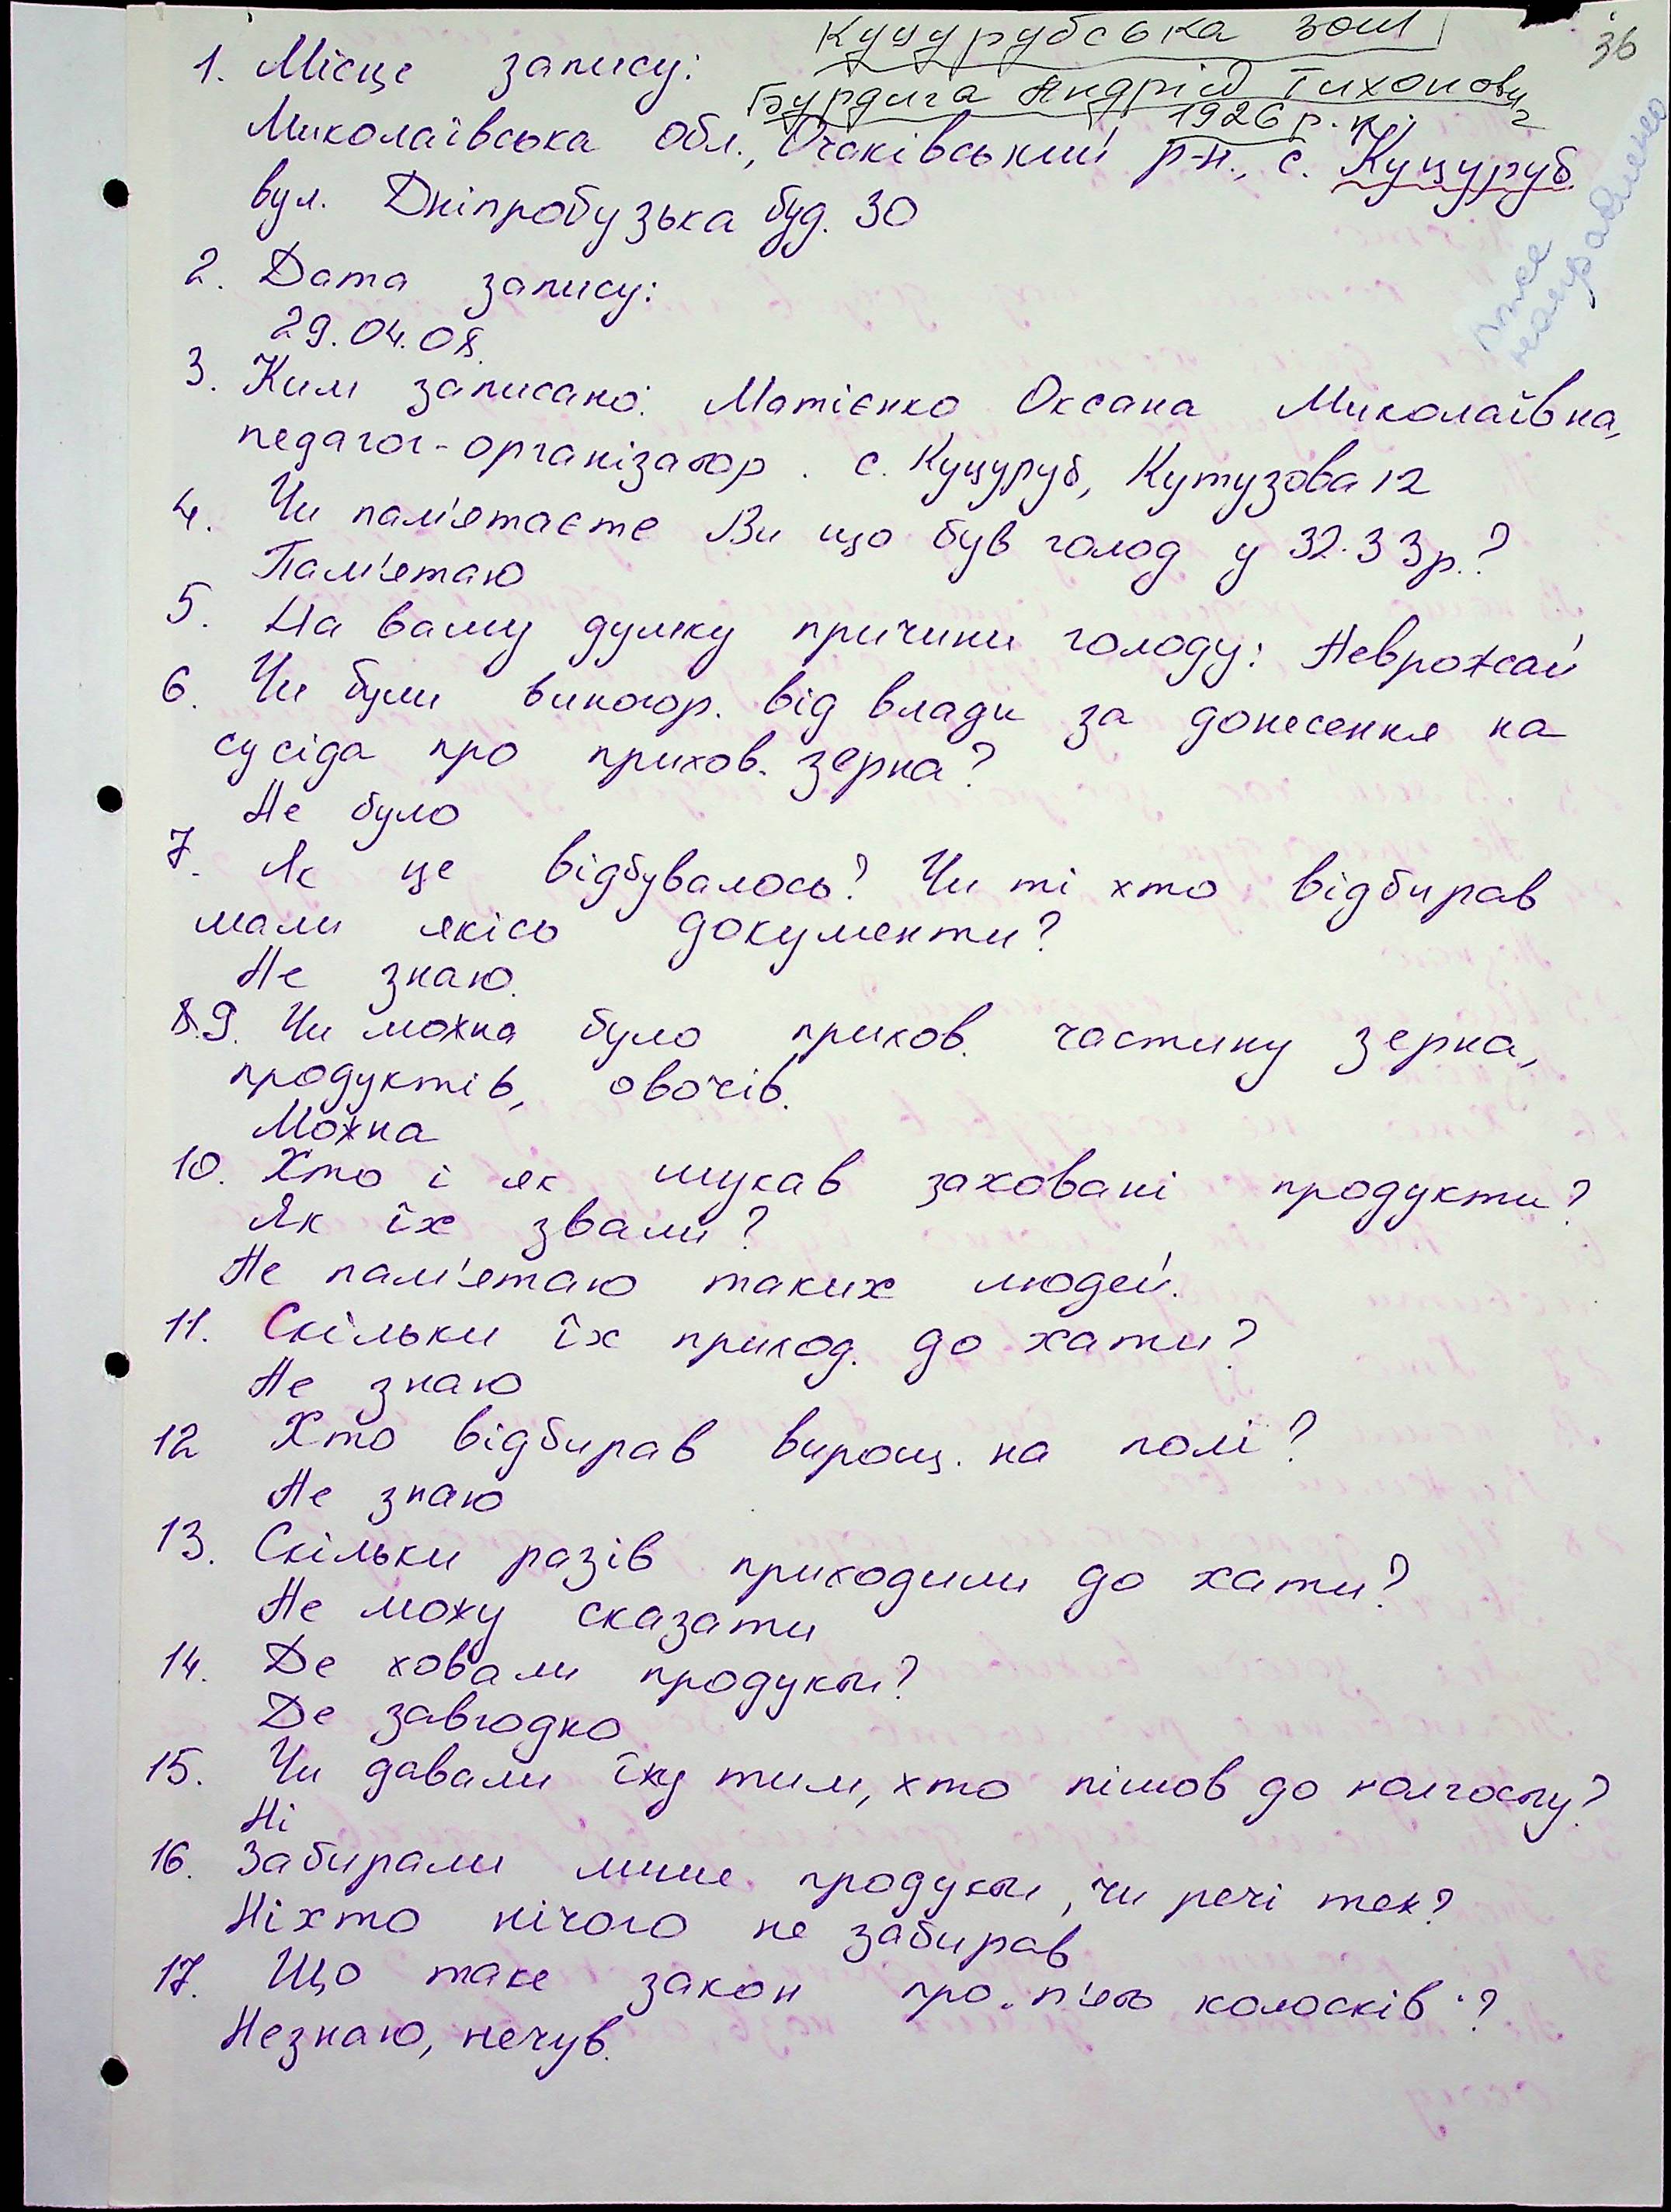 Куцурубська зош
36
Бурдига Андрій Тихонович
1926 р.н.
1. Місце запису:
Миколаївська обл., Очаківський р-н., с. Куцуруб
вул. Дніпробузька буд. 30
2. Дата запису:
29.04.08.
3. Ким записано: Матієнко Оксана Миколаївна,
педагог-організатор. с. Куцуруб, Кутузова 12
4. Чи пам'ятаєте Ви що був голод у 32-33р.?
Пам'ятаю
5. На вашу думку причини голоду: Неврожай
6. Чи були виногор. від влади за донесення на
сусіда про прихов. зерна?
Не було
7. Як це відбувалось? Чи ті хто відбирав
мали якісь документи?
Не знаю.
8.9. Чи можна було прихов. частину зерна,
продуктів, овочів.
Можна
10. Хто і як шукав заховані продукти?
Як їх звали?
Не пам'ятаю таких людей.
11. Скільки їх приход. до хати?
Не знаю
12 Хто відбирав вирощ. на полі?
Не знаю
13. Скільки разів приходили до хати?
Не можу сказати
14. Де ховали продукти?
Де завгодно
15. Чи давали їжу тим, хто пішов до колгоспу?
Ні
16. Забирали лише продукти, чи речі теж?
Ніхто нічого не забирав
17. Що таке закон про п'ять колосків?
Незнаю, нечув.